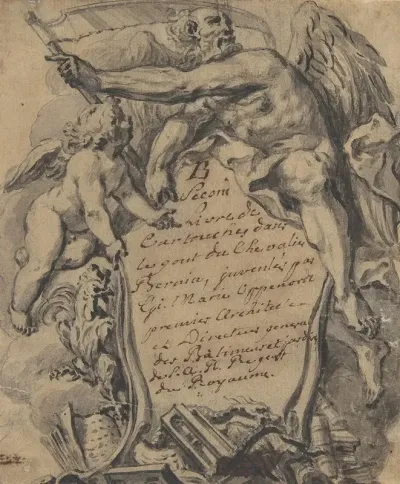 B
Second
Livre de
Cartouches dans
le gout du Chevalier
Bernin, inventés par
Gi. Marie Oppenort
premier Architecte
et Directeur general
des Bâtimens et jardins
de S. A. R. Regent
du Royaume.